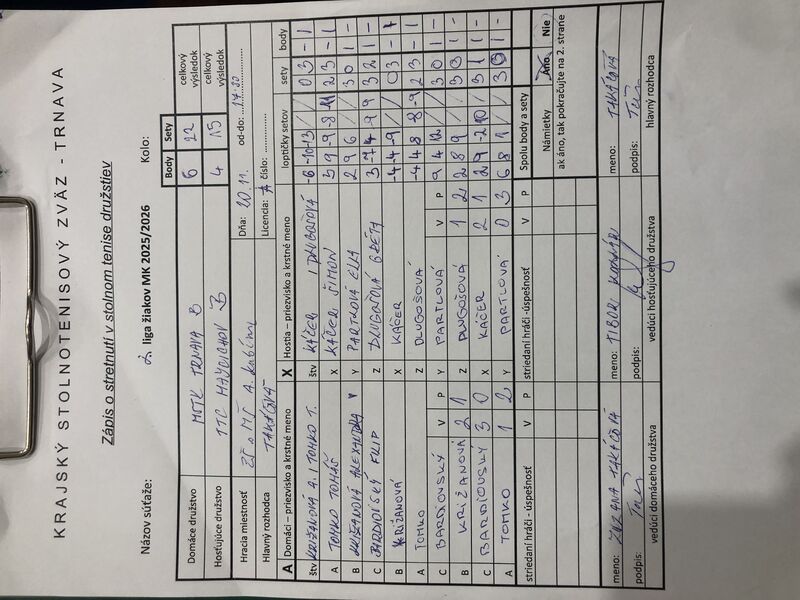 KRAJSKÝ STOLNOTENISOVÝ ZVÄZ - TRNAVA
Zápis o stretnutí v stolnom tenise družstiev
Názov súťaže: 2. liga žiakov MK 2025/2026 Kolo:
Body Sety
Domáce družstvo MSTK TRNAVA B 6 22 celkový výsledok
Hosťujúce družstvo TTC MAJCICHOV B 4 15 celkový výsledok
Hracia miestnosť ZŠ s MŠ A. Kubinu Dňa: 20.11. od-do: 17.00
Hlavný rozhodca TAKÁČOVÁ Licencia: A číslo:
A Domáci – priezvisko a krstné meno X Hostia – priezvisko a krstné meno loptičky setov sety body
štv KRIŽANOVÁ A. I TOMKO T. štv KÁČER I DLUGOŠOVÁ -6 -10 -13 / / 0 3 - 1
A TOMKO TOMÁŠ X KÁČER ŠIMON 5 9 -9 -8 -11 2 3 - 1
B KRIŽANOVÁ ALEXANDRA Y PARTLOVÁ ELLA 2 9 6 / / 3 0 1 -
C BARDIOVSKÝ FILIP Z DLUGOŠOVÁ GRÉTA 3 -7 4 -9 9 3 2 1 -
B KRIŽANOVÁ X KÁČER -4 -4 -9 / / 0 3 - 1
A TOMKO Z DLUGOŠOVÁ -4 4 8 -8 -9 2 3 - 1
C BARDIOVSKÝ V P Y PARTLOVÁ V P 9 4 12 / / 3 0 1 -
B KRIŽANOVÁ 2 1 Z DLUGOŠOVÁ 1 2 2 8 9 / / 3 0 1 -
C BARDIOVSKÝ 3 0 X KÁČER 2 1 2 9 -2 10 / 3 1 1 -
A TOMKO 1 2 Y PARTLOVÁ 0 3 6 8 1 / / 3 0 1 -
striedaní hráči - úspešnosť V P striedaní hráči -úspešnosť V P Spolu body a sety
Námietky Áno Nie
ak áno, tak pokračujte na 2. strane
meno: ZUZANA TAKÁČOVÁ meno: TIBOR meno: TAKÁČOVÁ
podpis: podpis: podpis:
vedúci domáceho družstva vedúci hosťujúceho družstva hlavný rozhodca